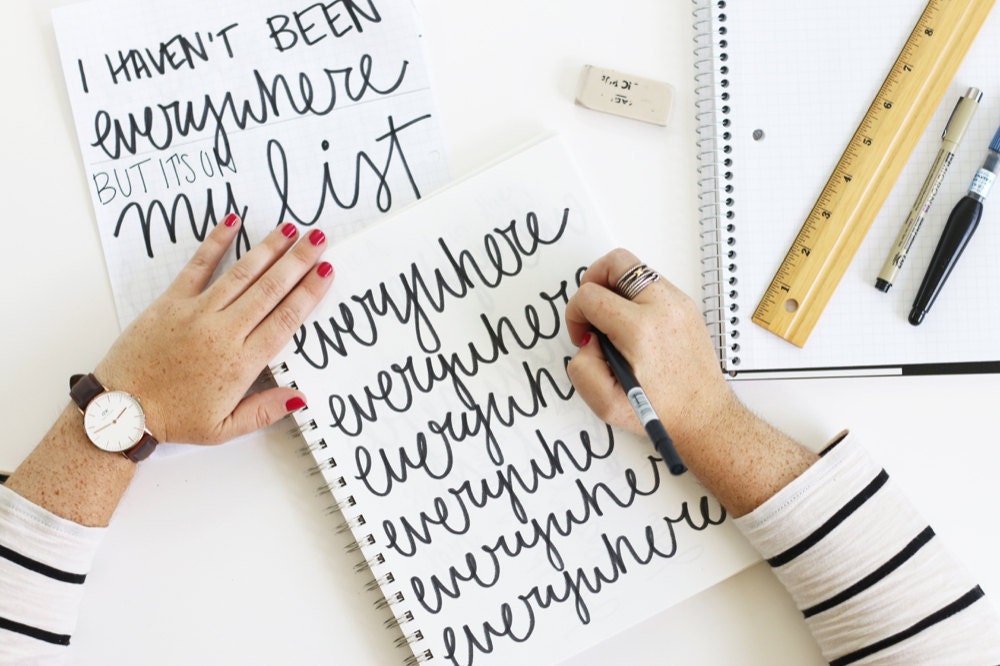 I HAVEN'T BEEN
everywhere
BUT IT'S ON
my list
everywhere
everywhere
everywhe
everywhe
everywhere
everywhere
1
2
3
4
5
6
7
8